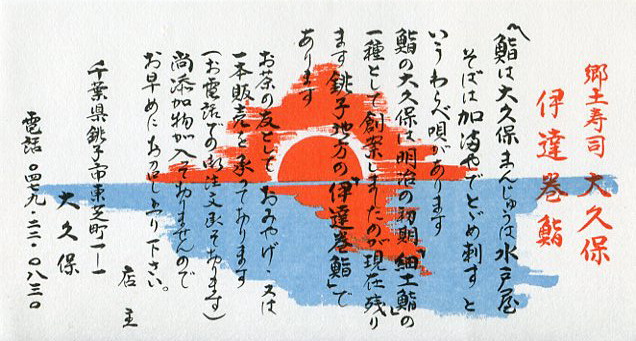 郷土寿司 大久保
伊達巻鮨
鮨は大久保まんじゅうは水戸屋
そばは加満やでとゞめ刺すと
いうわらべ唄があります
鮨の大久保は明治の初期「細工鮨」の
一種として創案しましたのが現在残り
ます銚子地方の「伊達巻鮨」で
あります
お茶の友として おみやげ・又は
一本販売を承っております
(お電話での御注文承ております)
尚添加物が入ておりませんので
お早めにお召し上り下さい。
店主
千葉県銚子市東芝町一ー一
大久保
電話 〇四七九・二二・〇八三〇